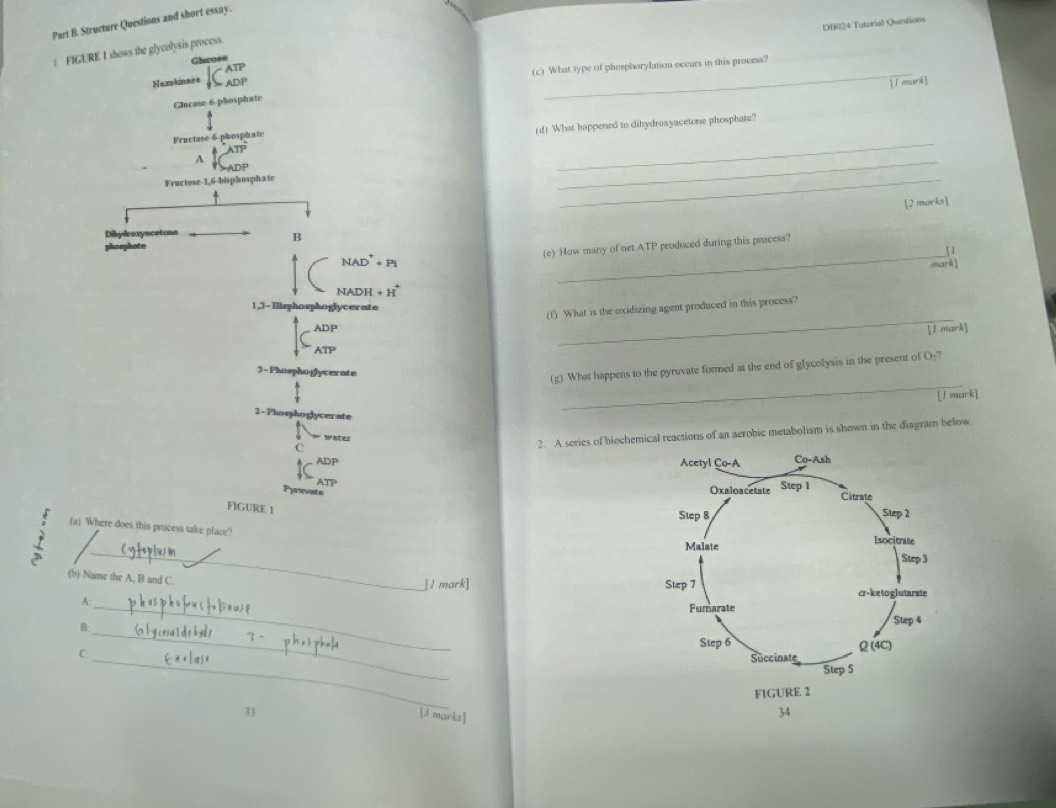 Part B. Structure Questions and short essay.
1. FIGURE 1 shows the glycolysis process.
Glucose
ATP
Hexokinase
ADP
Glucose-6-phosphate
Fructose-6-phosphate
ATP
A
ADP
Fructose-1,6-bisphosphate
Dihydroxyacetone
phosphate
B
NAD+ + Pi
NADH + H+
1,3-Bisphosphoglycerate
ADP
ATP
3-Phosphoglycerate
2-Phosphoglycerate
water
C
ADP
ATP
Pyruvate
FIGURE 1
(a) Where does this process take place?
cytoplasm
[1 mark]
(b) Name the A, B and C.
A: phosphofructokinase
B: Glyceraldehyde 3- phosphate
C: Enolase
[3 marks]
33
DB024 Tutorial Questions
(c) What type of phosphorylation occurs in this process?
[1 mark]
(d) What happened to dihydroxyacetone phosphate?
[2 marks]
(e) How many of net ATP produced during this process?
[1
mark]
(f) What is the oxidizing agent produced in this process?
[1 mark]
(g) What happens to the pyruvate formed at the end of glycolysis in the present of O2?
[1 mark]
2. A series of biochemical reactions of an aerobic metabolism is shown in the diagram below.
Acetyl Co-A
Co-Ash
Oxaloacetate
Step 1
Citrate
Step 8
Step 2
Malate
Isocitrate
Step 3
Step 7
α-ketoglutarate
Fumarate
Step 4
Step 6
Q (4C)
Succinate
Step 5
FIGURE 2
34